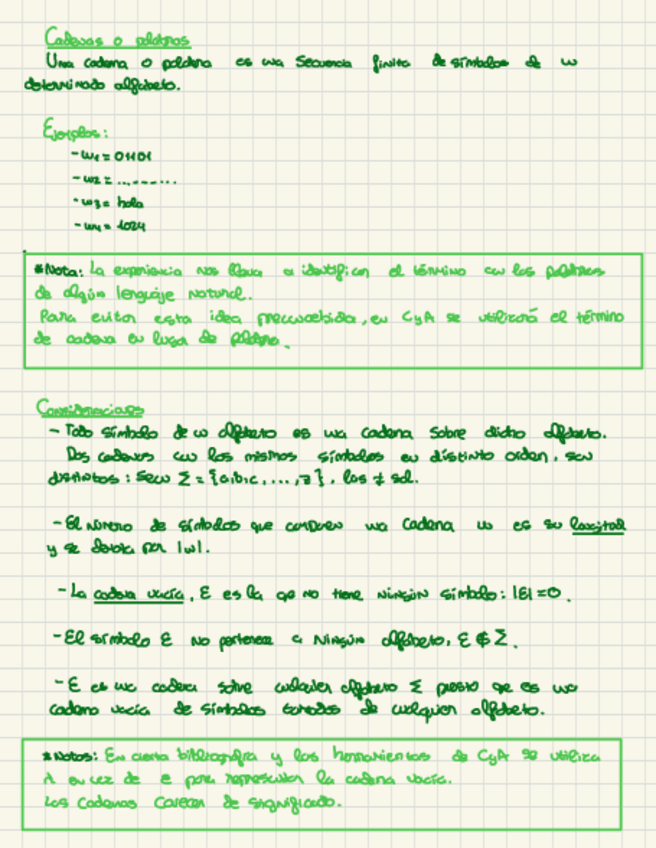 Cadenas o palabras
Una cadena o palabra es una secuencia finita de símbolos de un
determinado alfabeto.
Ejemplos:
- w1 = 01101
- w2 = ..........
- w3 = hola
- w4 = 1024
*Nota: La experiencia nos lleva a identificar el término con las palabras
de algún lenguaje natural.
Para evitar esta idea preconcebida, en CyA se utilizará el término
de cadena en lugar de palabra.
Consideraciones
- Todo símbolo de un alfabeto es una cadena sobre dicho alfabeto.
Dos cadenas con los mismos símbolos en distinto orden, son
distintas: Sean Σ = {a,b,c,...,z}, las ≠ sal.
- El número de símbolos que componen una cadena w es su longitud
y se denota por |w|.
- La cadena vacía, ε es la que no tiene ningún símbolo: |ε| = 0.
- El símbolo ε no pertenece a ningún alfabeto, ε ∉ Σ.
- ε es una cadena sobre cualquier alfabeto Σ puesto que es una
cadena vacía de símbolos tomados de cualquier alfabeto.
*Notas: En cierta bibliografía y las herramientas de CyA se utiliza
λ en vez de ε para representar la cadena vacía.
Las cadenas carecen de significado.